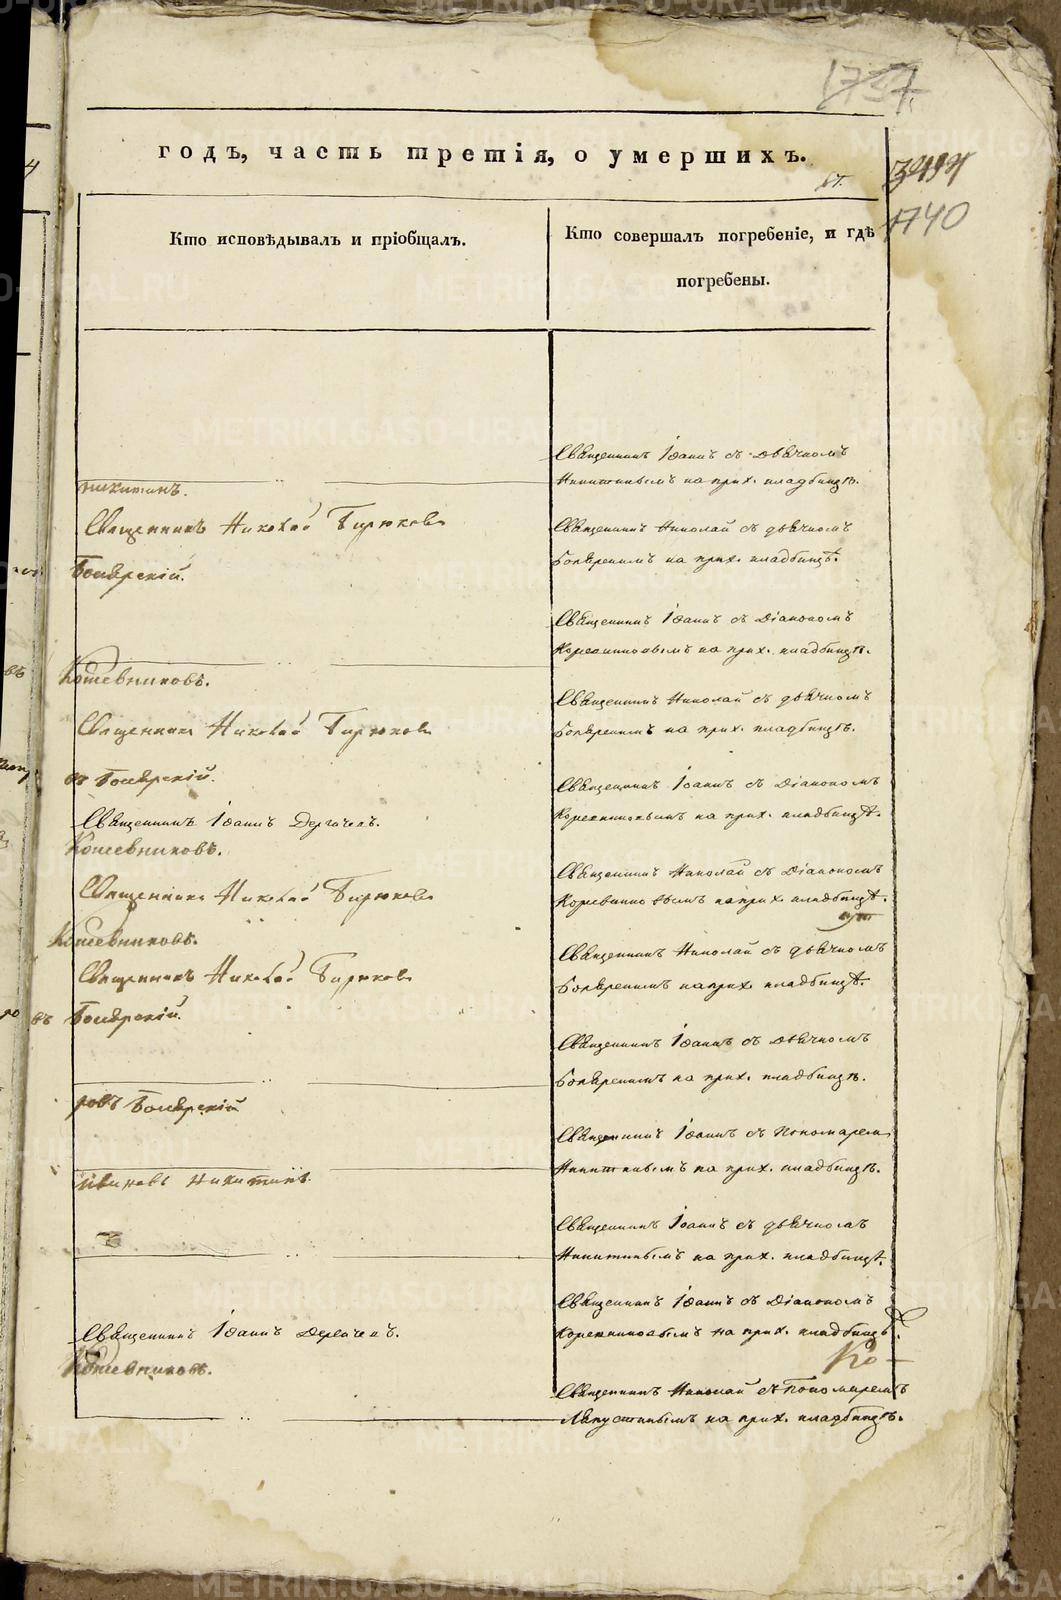 1737.
годъ, часть третія, о умершихъ.
1740
Кто исповѣдывалъ и пріобщалъ.
Кто совершалъ погребеніе, и гдѣ
погребены.
Священникъ Іоаннъ съ дьячкомъ
Никитинымъ на прих. кладбищѣ.
Никитинъ.
Священникъ Николай Бирюковъ
Священникъ Николай съ дьячкомъ
Боярскимъ на прих. кладбищѣ.
Боярскій.
Священникъ Іоаннъ съ Діакономъ
на прих. кладбищѣ.
Кожевниковъ.
Священникъ Николай съ дьячкомъ
Священникъ Николай Бирюковъ
Боярскимъ на прих. кладбищѣ.
въ Боярскій.
Священникъ Іоаннъ съ Діакономъ
Священникъ Іоаннъ Дергачевъ.
на прих. кладбищѣ.
Кожевниковъ.
Священникъ Николай съ Діакономъ
Священникъ Николай Бирюковъ
на прих. кладбищѣ.
Кожевниковъ.
Священникъ Николай съ дьячкомъ
Священникъ Николай Бирюковъ
Боярскимъ на прих. кладбищѣ.
въ Боярскій.
Священникъ Іоаннъ съ дьячкомъ
Боярскимъ на прих. кладбищѣ.
ровъ Боярскій
Священникъ Іоаннъ съ Пономаремъ
Никитинымъ на прих. кладбищѣ.
Никитинъ.
Священникъ Іоаннъ съ дьячкомъ
Никитинымъ на прих. кладбищѣ.
Священникъ Іоаннъ съ Діакономъ
Священникъ Іоаннъ Дергачевъ.
на прих. кладбищѣ.
Кожевниковъ.
Ко-
Священникъ Николай съ Пономаремъ
Лапустинымъ на прих. кладбищѣ.
METRIKI.GASO-URAL.RU